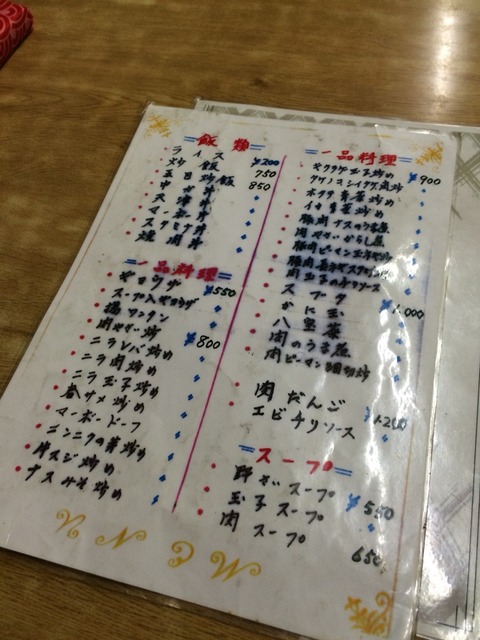 飯類
ライス ¥200
炒飯 750
五目炒飯 850
中華丼
天津丼
マーボ丼
スタミナ丼
焼肉丼
一品料理
ギョウザ ¥550
スープ入ギョウザ
揚ワンタン
肉ヤサイ炒 ¥800
ニラレバ炒め
ニラ肉炒め
ニラ玉子炒め
春サメ炒め
マーボードーフ
ニンニクの芽炒め
牛スジ炒め
ナスみそ炒め
一品料理
キクラゲ玉子炒め ¥900
ホタテ青菜炒め
イカ青菜炒め
豚肉ナスのうま煮
肉ヤサイからし煮
豚肉ピーマン玉子炒め
肉玉子のチリソース
スブタ ¥1,000
かに玉
八宝菜
肉のうま煮
肉ピーマン細切炒
肉だんご ¥1200
エビチリソース
スープ
野菜スープ ¥550
玉子スープ
肉スープ 650
MENU